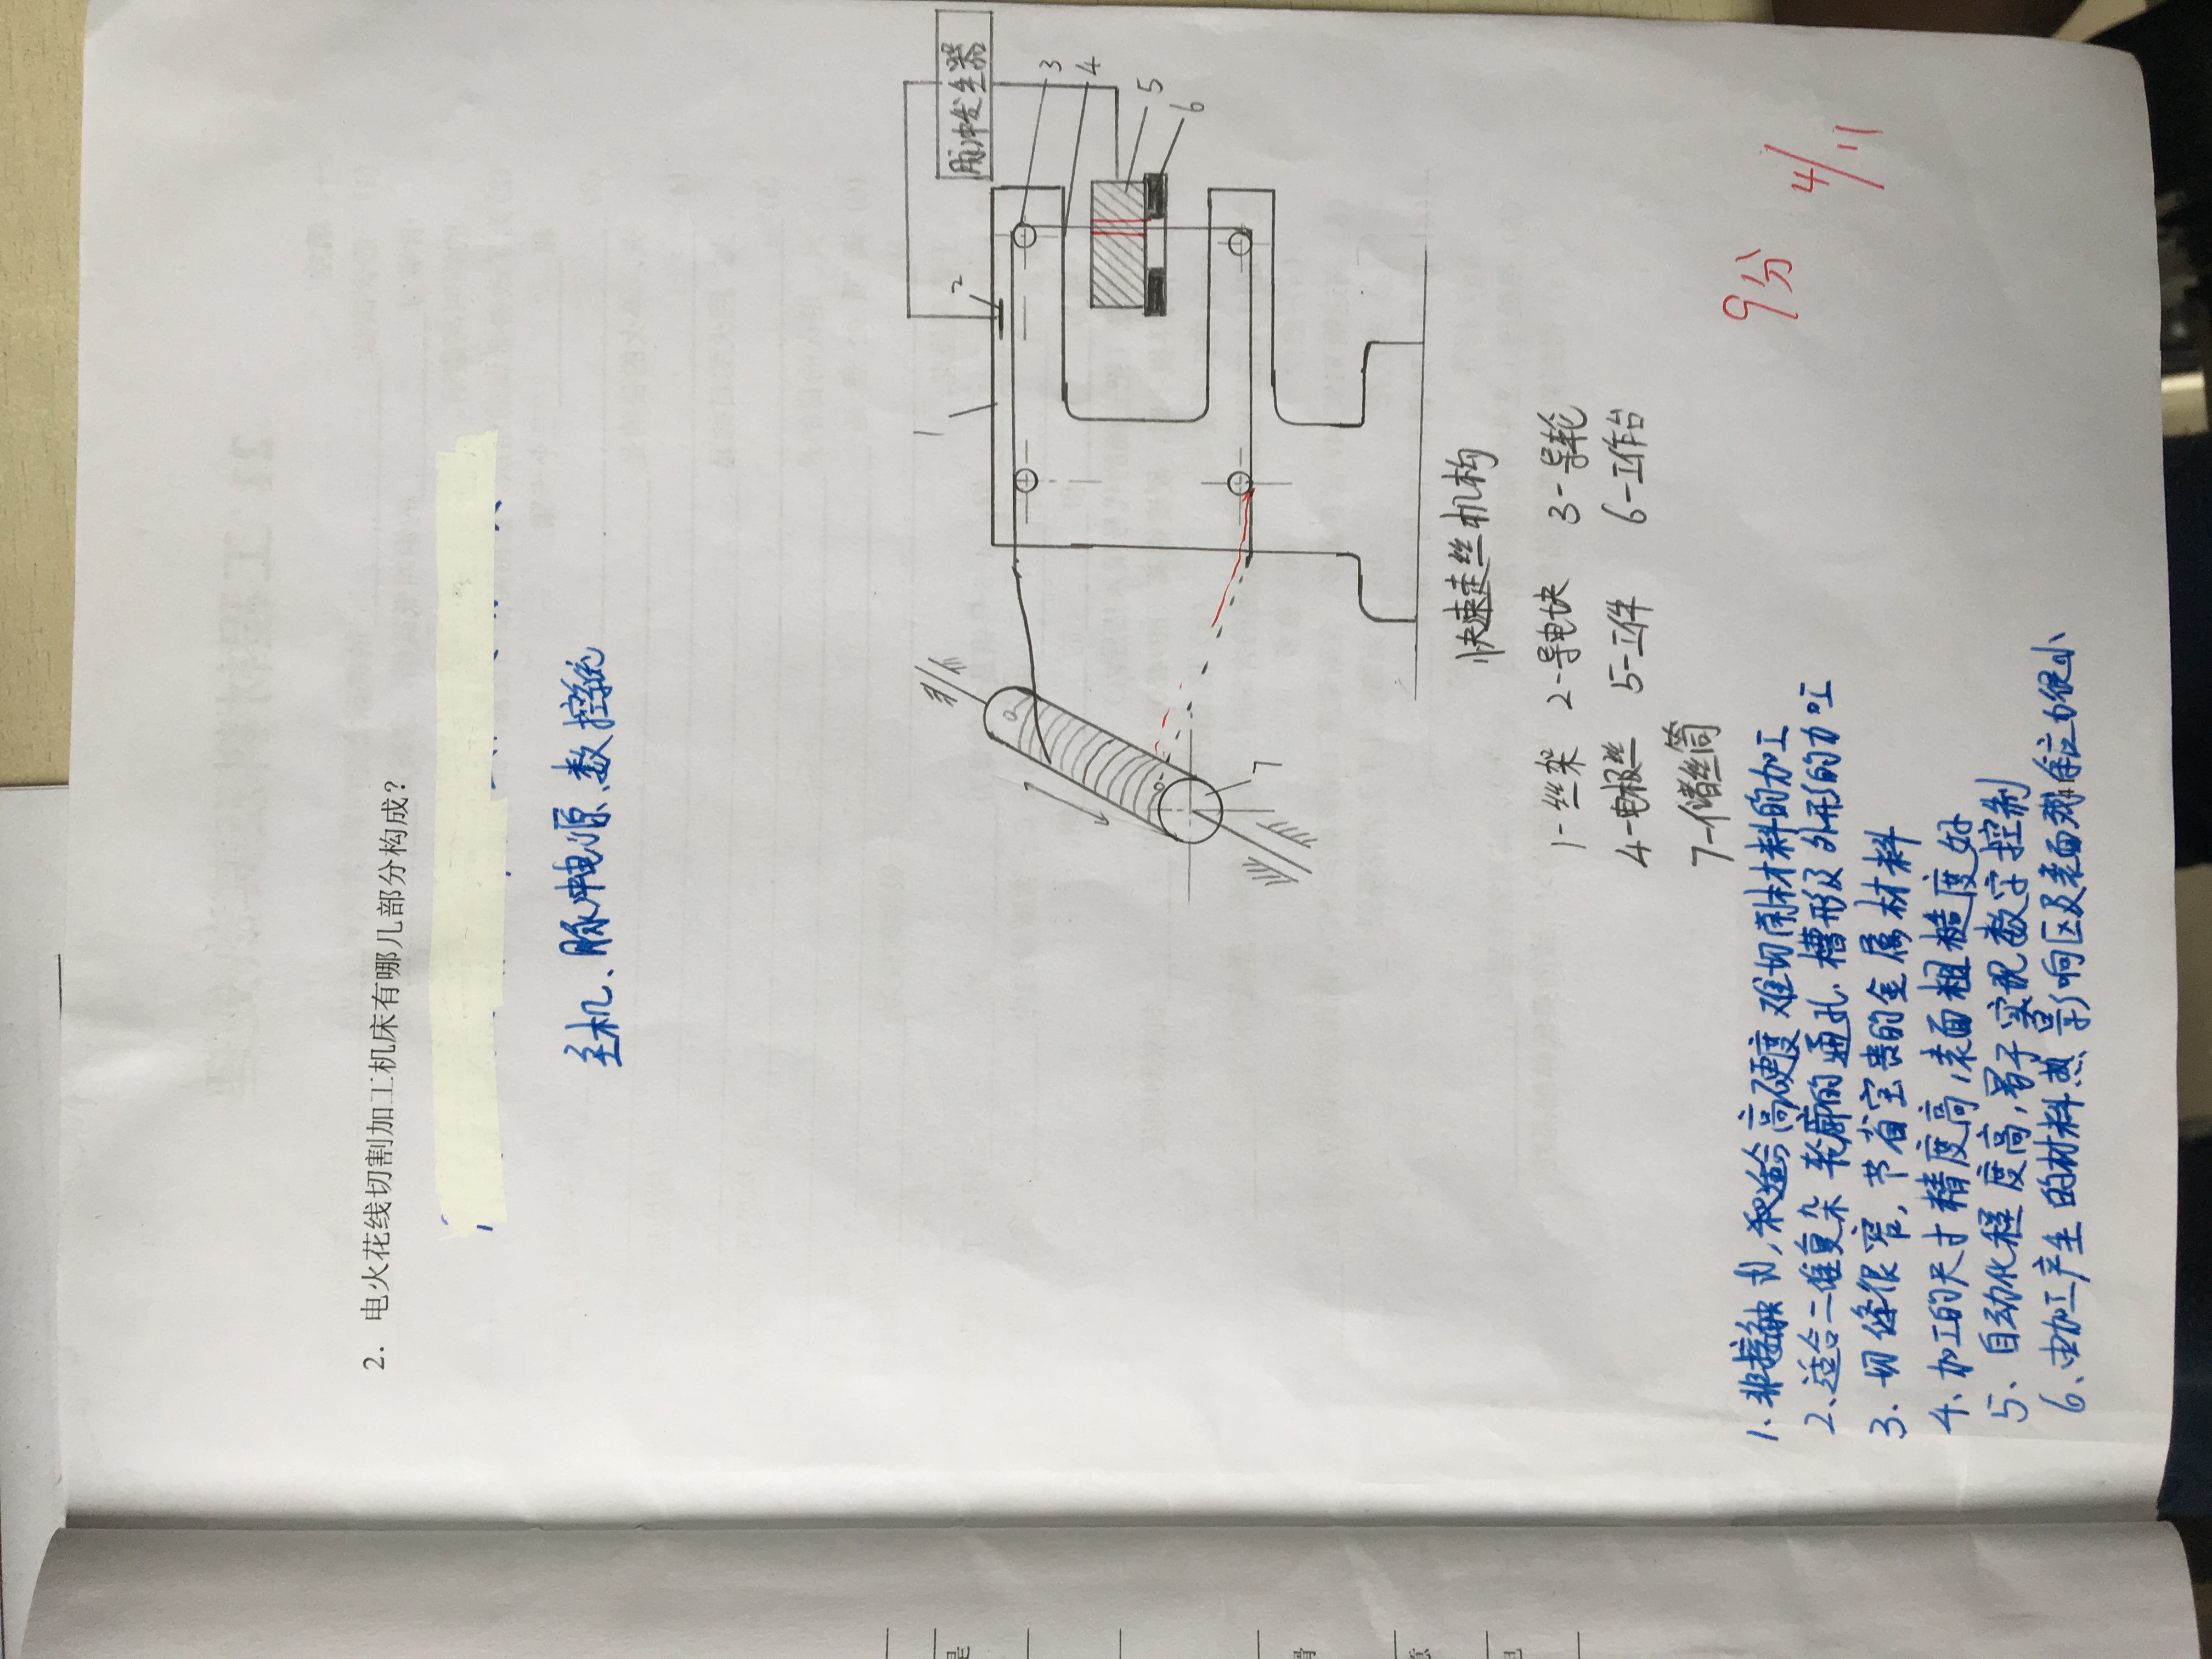 2. 电火花线切割加工机床有哪几部分构成?
主机、脉冲电源、数控系统
1
2
脉冲发生器
3
4
5
6
7
快速走丝机构
1-丝架 2-导电块 3-导轮
4-电极丝 5-工件 6-工作台
7-储丝筒
1、非接触式,很适合高硬度难切削材料的加工
2、适合二维复杂轮廓的通孔、槽形及外形的加工
3、切缝很窄,节省宝贵的金属材料
4、加工的尺寸精度高,表面粗糙度好
5、自动化程度高,易于实现数字控制
6、由加工产生的材料热影响区及表面残余应力很小
9分
4/11